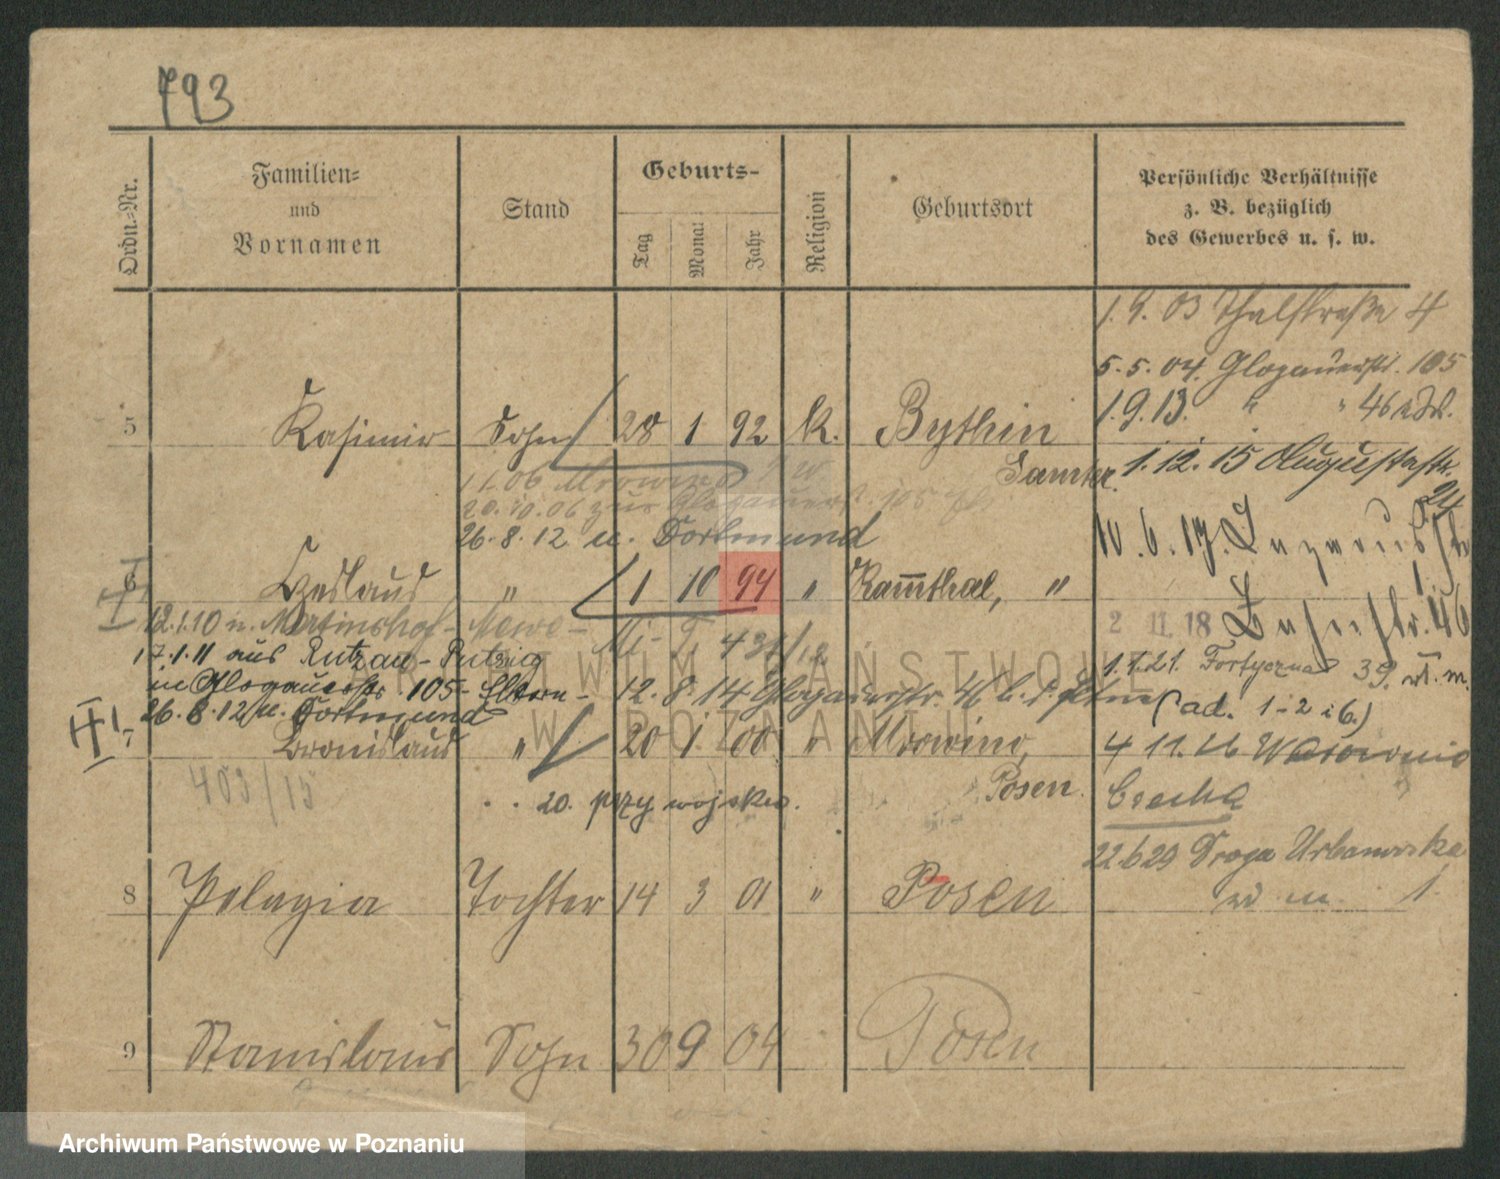 793
Ordn.-Nr.
Familien-
und
Vornamen
Stand
Geburts-
Tag
Monat
Jahr
Religion
Geburtsort
Persönliche Verhältnisse
z. B. bezüglich
des Gewerbes u. s. w.
1.9.03 Thalstraße 4
5.5.04. Glogauerstr. 105
1.9.13. " " 46
5 Kasimir Sohn 28 1 92 k. Bythin
Samter.
1.12.15 Augustastr.
24
1.1.06 Mrowino
20.10.06 zur Glogauerst. 105
26.8.12 u. Dortmund
10.6.17. Lazarusstr
1.
6 Czeslaus " 1 10 94 " Kammthal, "
12.1.10 n. Martinshof - Mewe -
2 11. 18 46
17.1.11 aus Rutzau - Putzig
in Glogauerstr. 105 - Eltern - 12.8.14 Glogauerstr.
1.1.21. Fortyczna 39.
26.8.12 u. Dortmund
(ad. 1-2 i 6.)
7 Bronislaus " 20 1 00 " Mrowino,
Posen.
4 11.26
403/15
20. przy wojsku.
Czecha
22.6.29 Droga Urbanowska
w m. 1.
8 Pelagia Tochter 14 3 01 " Posen
9 Stanislaus Sohn 30 9 04 Posen
ARCHIWUM PAŃSTWOWE
W POZNANIU
Archiwum Państwowe w Poznaniu